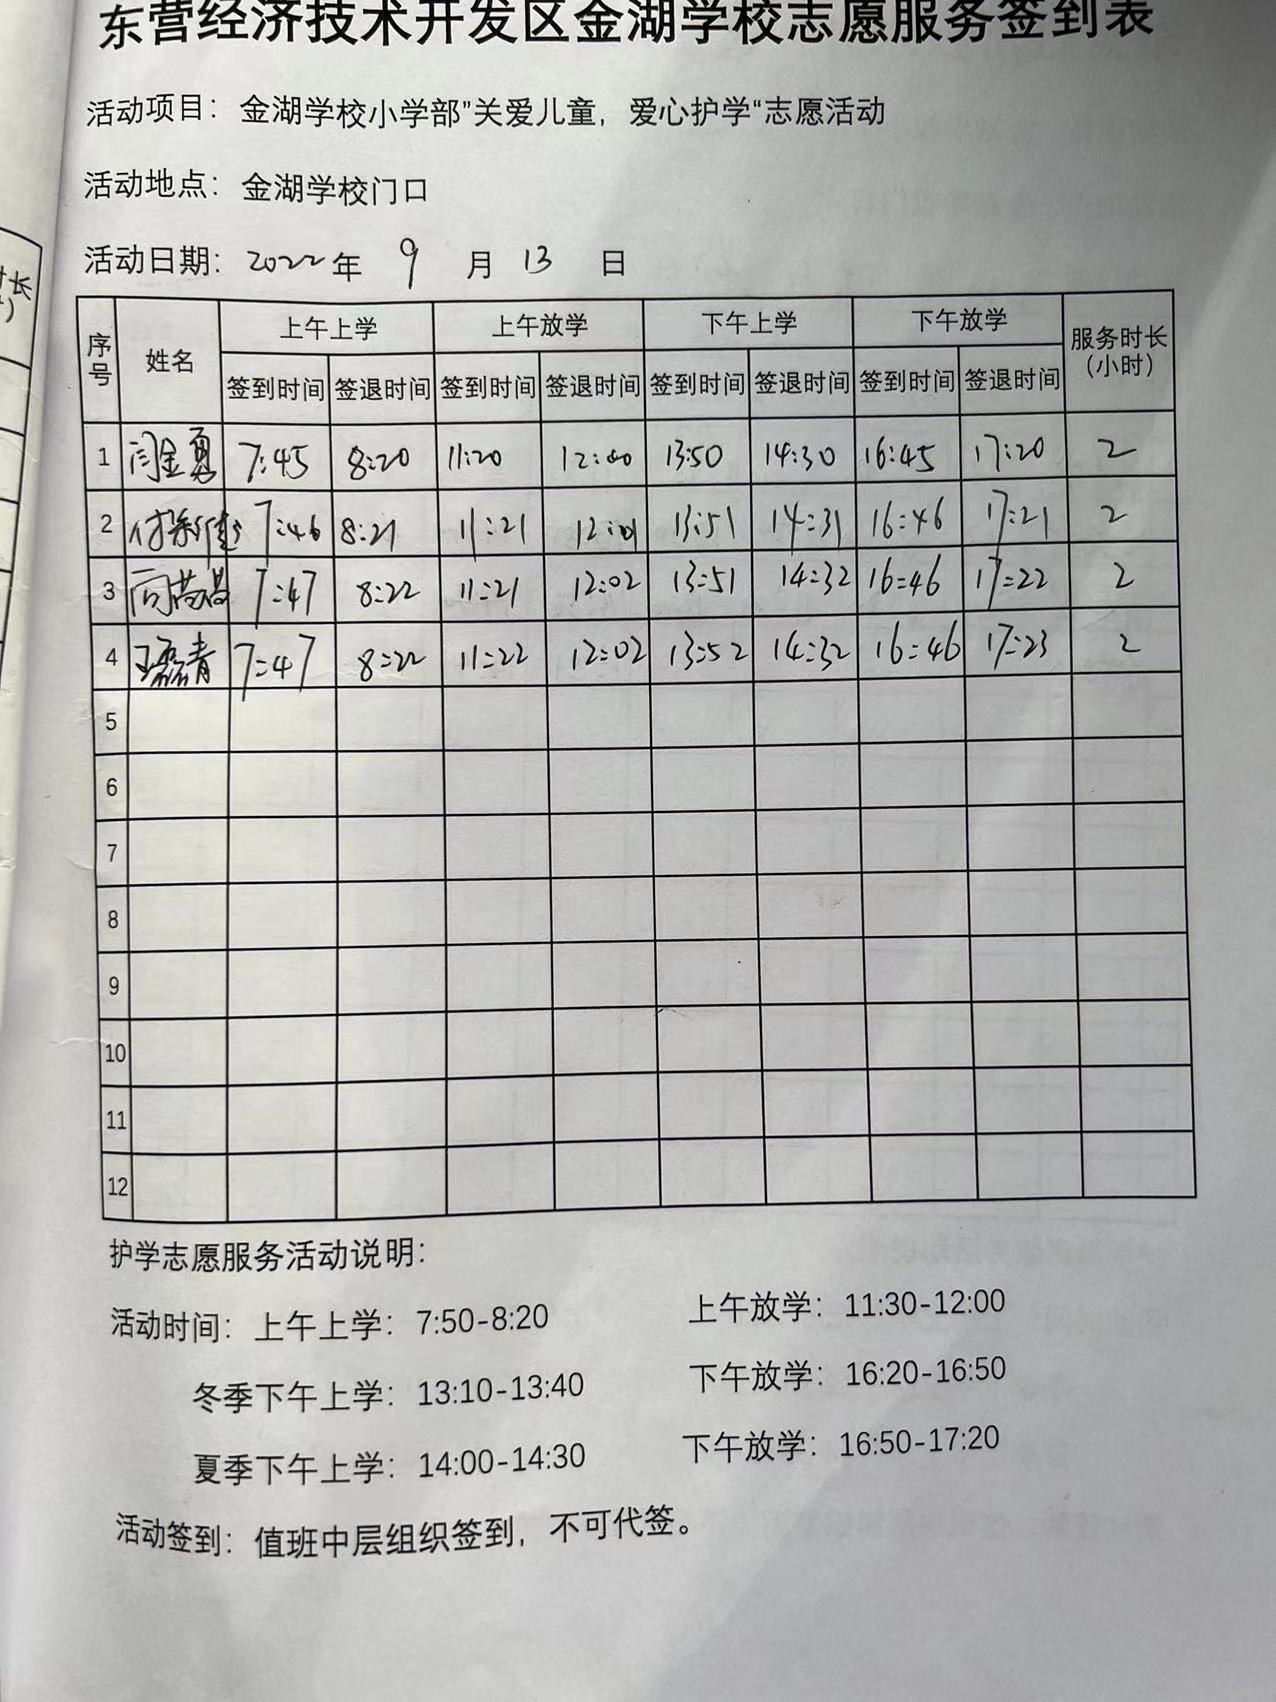 东营经济技术开发区金湖学校志愿服务签到表
活动项目：金湖学校小学部”关爱儿童，爱心护学“志愿活动
活动地点：金湖学校门口
活动日期：2022年 9 月 13 日
序号 姓名 上午上学 上午放学 下午上学 下午放学 服务时长（小时）
签到时间 签退时间 签到时间 签退时间 签到时间 签退时间 签到时间 签退时间
1 闫金勇 7:45 8:20 11:20 12:00 13:50 14:30 16:45 17:20 2
2 7:46 8:21 11:21 12:01 13:51 14:31 16:46 17:21 2
3 7:47 8:22 11:21 12:02 13:51 14:32 16:46 17:22 2
4 王磊青 7:47 8:22 11:22 12:02 13:52 14:32 16:46 17:23 2
5
6
7
8
9
10
11
12
护学志愿服务活动说明：
活动时间：上午上学：7:50-8:20 上午放学：11:30-12:00
冬季下午上学：13:10-13:40 下午放学：16:20-16:50
夏季下午上学：14:00-14:30 下午放学：16:50-17:20
活动签到：值班中层组织签到，不可代签。